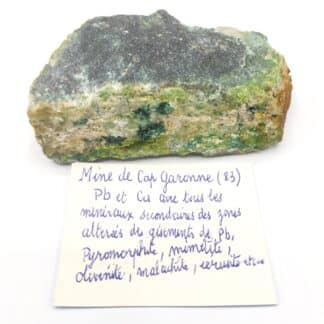 Mine de Cap Garonne (83)
Pb et Cu avec tous les
minéraux secondaires des zones
altérées des gisements de Pb,
Pyromorphite, mimétite,
olivénite, malachite, cérusite etc...